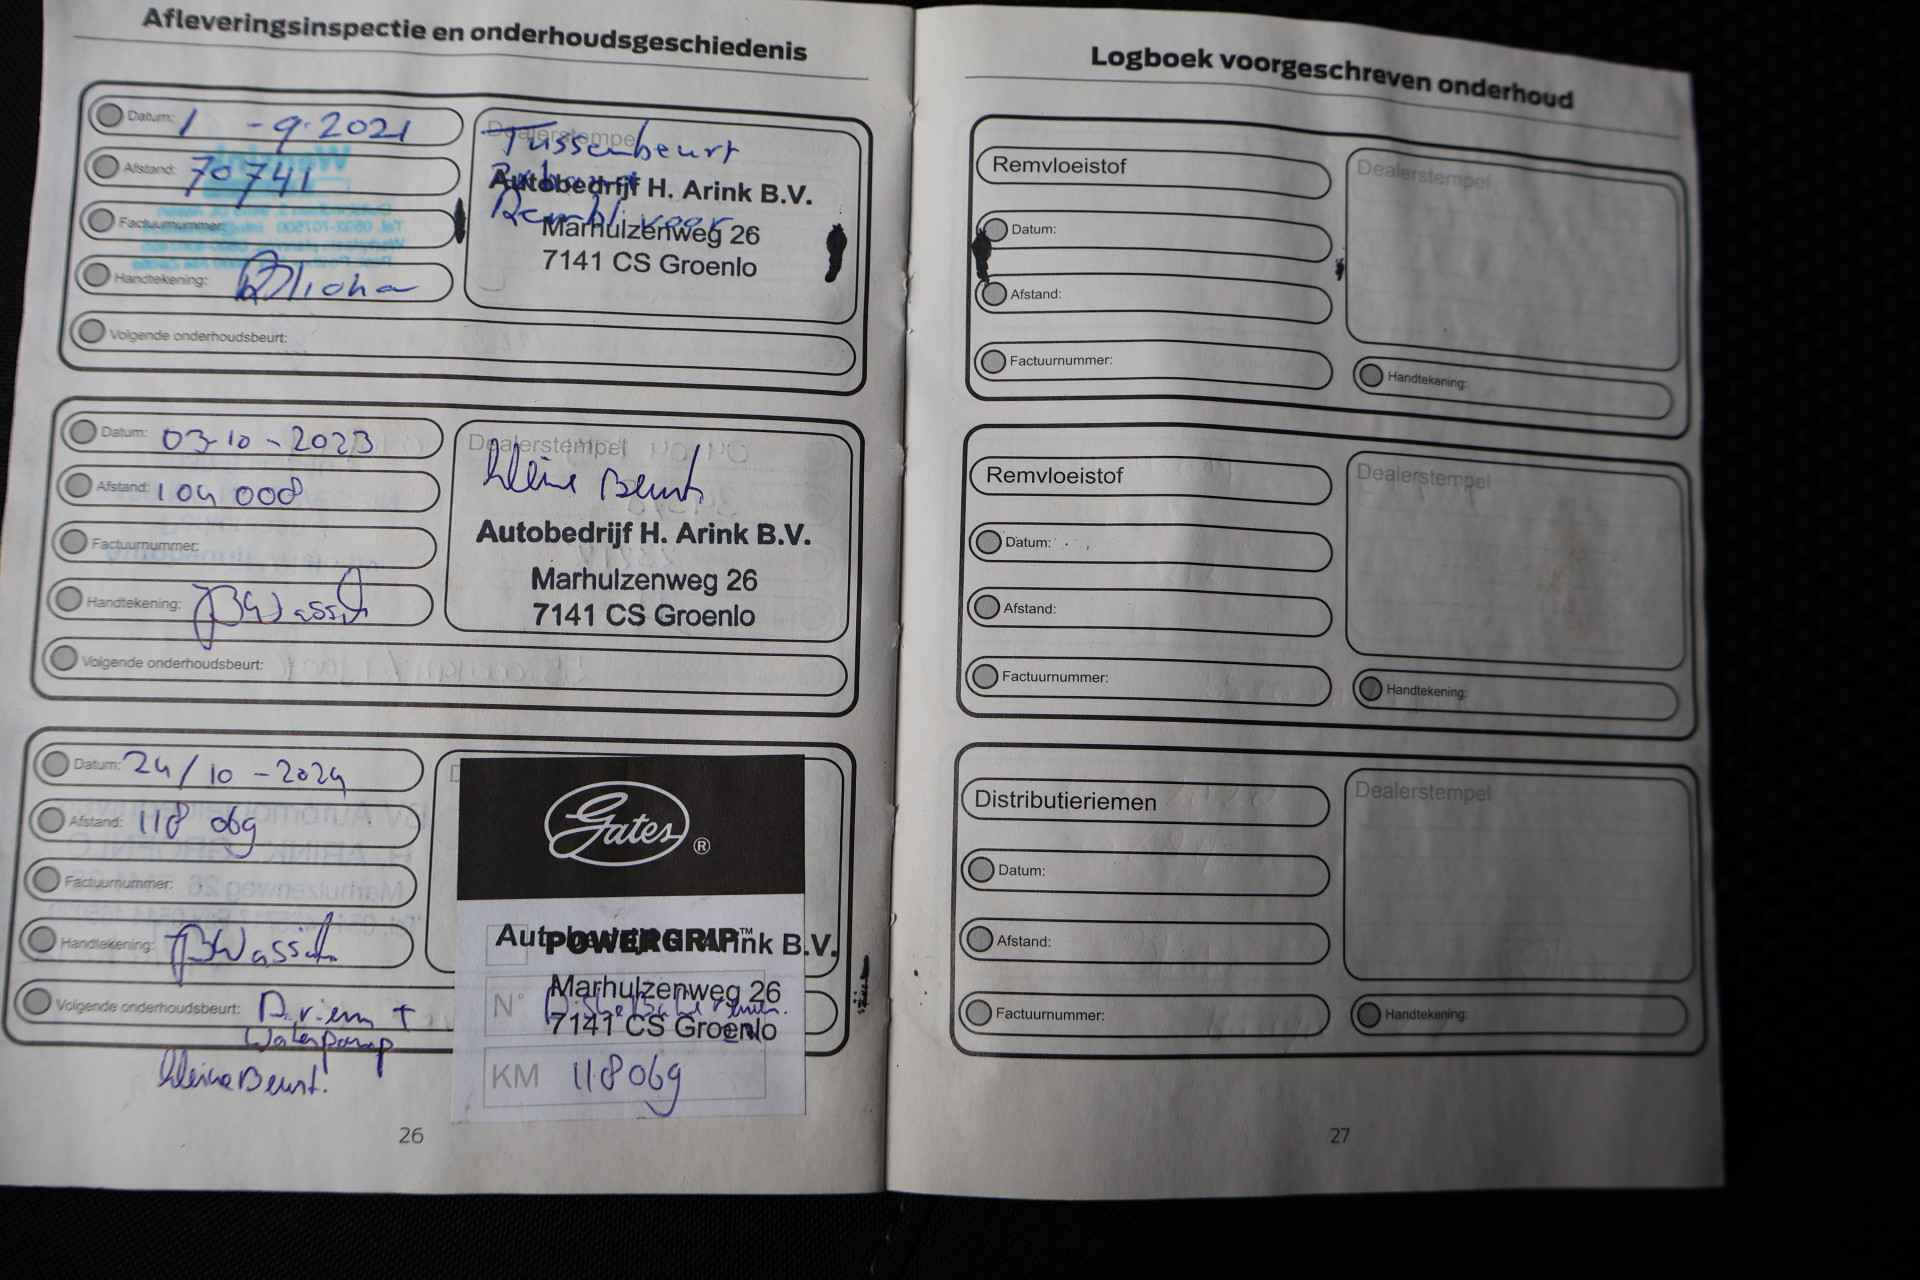 Afleveringsinspectie en onderhoudsgeschiedenis
Datum: 1 - 9 - 2021
Afstand: 70741
Factuurnummer:
Handtekening:
Volgende onderhoudsbeurt:
Dealerstempel
Tussenbeurt
Autobedrijf H. Arink B.V.
Marhulzenweg 26
7141 CS Groenlo
Datum: 03-10-2023
Afstand: 104 008
Factuurnummer:
Handtekening:
Volgende onderhoudsbeurt:
Dealerstempel
kleine Beurt
Autobedrijf H. Arink B.V.
Marhulzenweg 26
7141 CS Groenlo
Datum: 24/10-2024
Afstand: 118 069
Factuurnummer:
Handtekening:
Volgende onderhoudsbeurt: D.riem +
Waterpomp
kleine Beurt!
Gates ®
POWERGRIP™
Autobedrijf H. Arink B.V.
Marhulzenweg 26
N°
7141 CS Groenlo
KM 118069
26
Logboek voorgeschreven onderhoud
Remvloeistof
Datum:
Afstand:
Factuurnummer:
Dealerstempel
Handtekening:
Remvloeistof
Datum:
Afstand:
Factuurnummer:
Dealerstempel
Handtekening:
Distributieriemen
Datum:
Afstand:
Factuurnummer:
Dealerstempel
Handtekening:
27